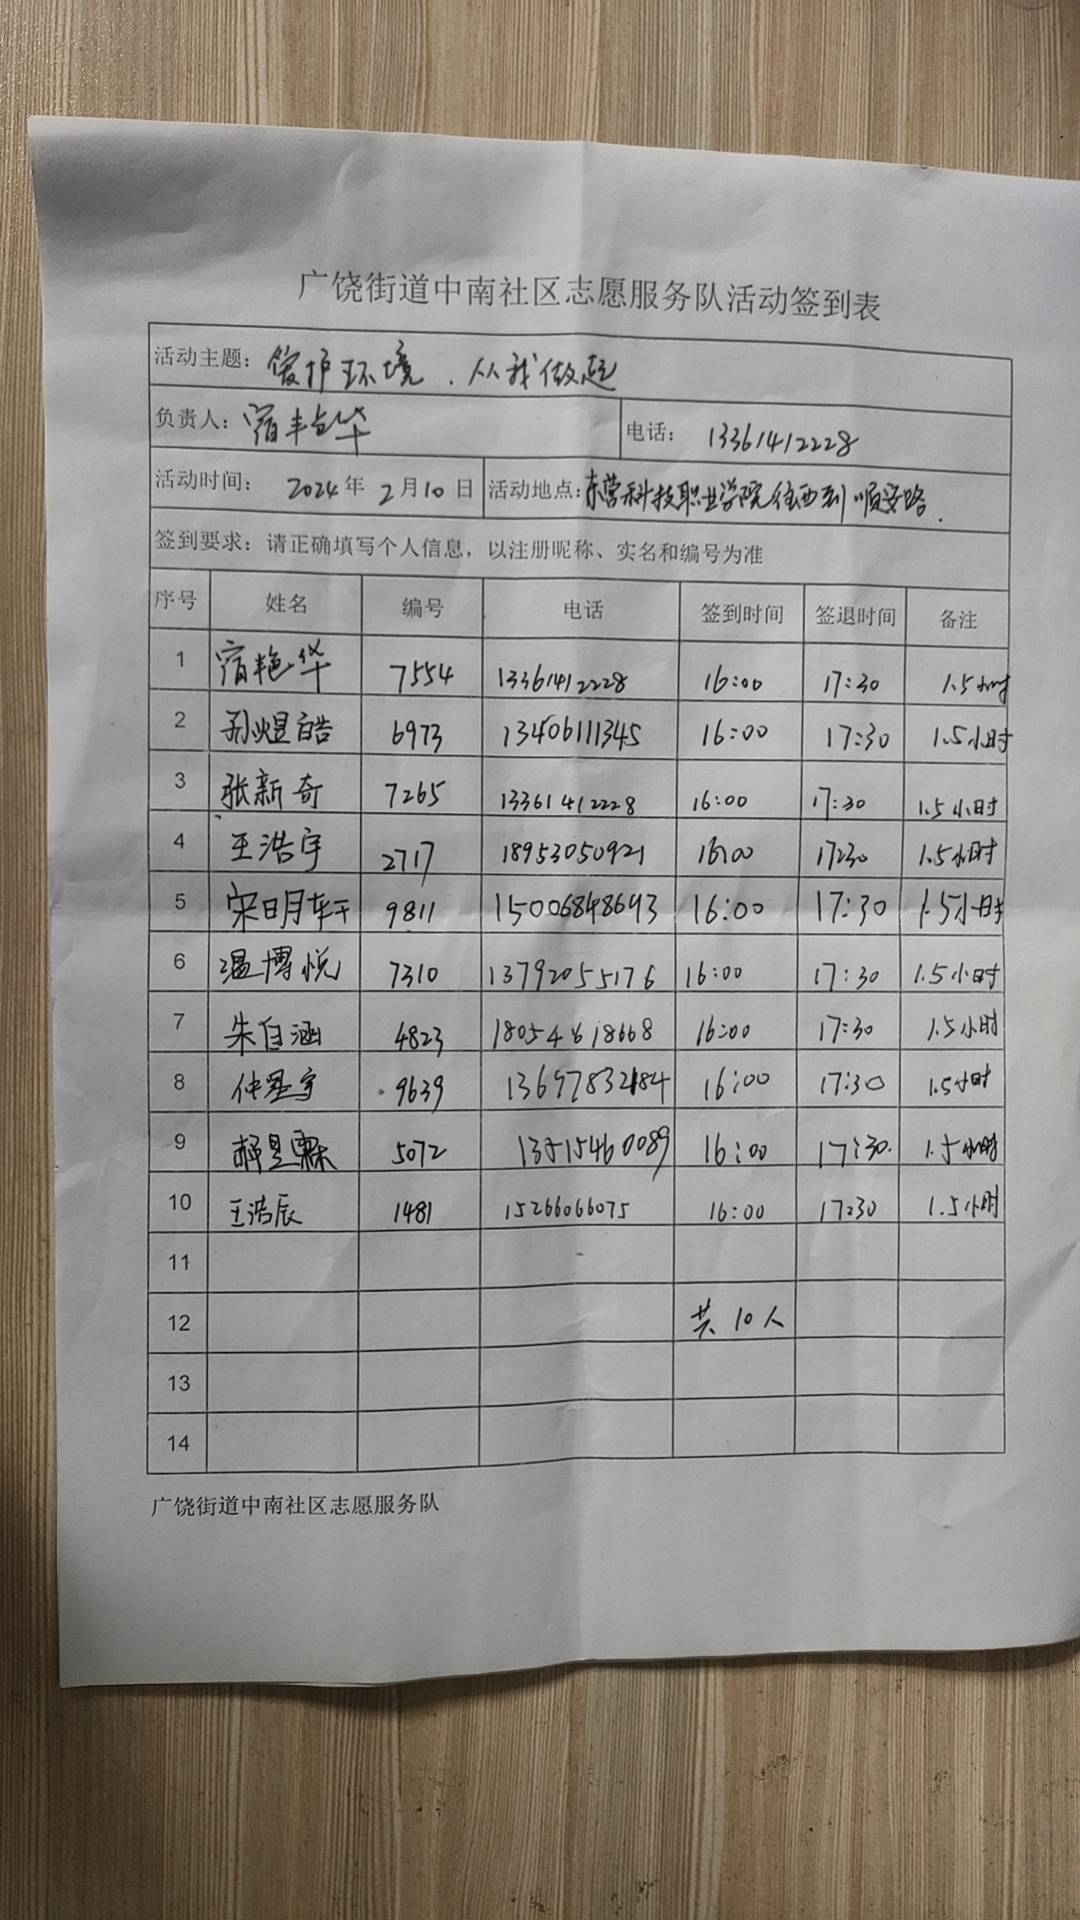 广饶街道中南社区志愿服务队活动签到表
活动主题: 爱护环境.从我做起
负责人: 宿艳华 电话: 13361412228
活动时间: 2024年 2月10日 活动地点: 东营科技职业学院往西到顺安路.
签到要求: 请正确填写个人信息, 以注册昵称、实名和编号为准
序号 姓名 编号 电话 签到时间 签退时间 备注
1 宿艳华 7554 13361412228 16:00 17:30 1.5小时
2 孙煜皓 6973 13406111345 16:00 17:30 1.5小时
3 张新奇 7265 13361412228 16:00 17:30 1.5小时
4 王浩宇 2717 18953050921 16:00 17:30 1.5小时
5 宋明轩 9811 15006848643 16:00 17:30 1.5小时
6 温博悦 7310 13792055176 16:00 17:30 1.5小时
7 朱自涵 4823 18054618668 16:00 17:30 1.5小时
8 仲星宇 9639 13697832184 16:00 17:30 1.5小时
9 郝昱霖 5072 13515460089 16:00 17:30. 1.5小时
10 王浩辰 1481 15266066075 16:00 17:30 1.5小时
11
12 共10人
13
14
广饶街道中南社区志愿服务队